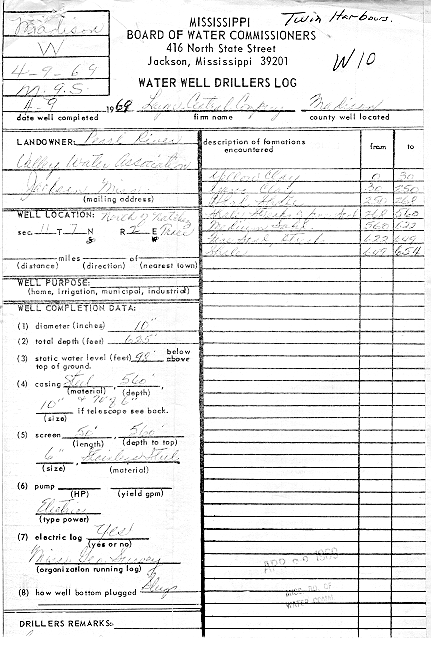 Madison
W
4-9-69
M.G.S.
MISSISSIPPI
BOARD OF WATER COMMISSIONERS
416 North State Street
Jackson, Mississippi 39201
WATER WELL DRILLERS LOG
Twin Harbours.
W10
4-9 1969 Layne Central Company Madison
date well completed firm name county well located
LANDOWNER: Pearl River
Valley Water Association
Jackson Miss
(mailing address)
WELL LOCATION: North of Natchez
sec. 11 T 7 N R 2 E Trace
S W
miles of
(distance) (direction) (nearest town)
WELL PURPOSE:
(home, irrigation, municipal, industrial)
WELL COMPLETION DATA:
(1) diameter (inches) 10"
(2) total depth (feet) 625'
(3) static water level (feet) 98' below above
top of ground.
(4) casing Steel, 560'
(material) (depth)
10" if telescope see back.
(size)
(5) screen 50', 560'
(length) (depth to top)
6", Stainless Steel
(size) (material)
(6) pump
(HP) (yield gpm)
Electric
(type power)
(7) electric log Yes!
(yes or no)
Miss. Geo. Survey
(organization running log)
(8) how well bottom plugged Plug
DRILLERS REMARKS:
description of formations encountered from to
Yellow Clay 0 30
Clay 30 250
250 268
268 560
560 622
622 649
Shale 649 654
APR 1969
MISS. BD. OF
WATER COMM.